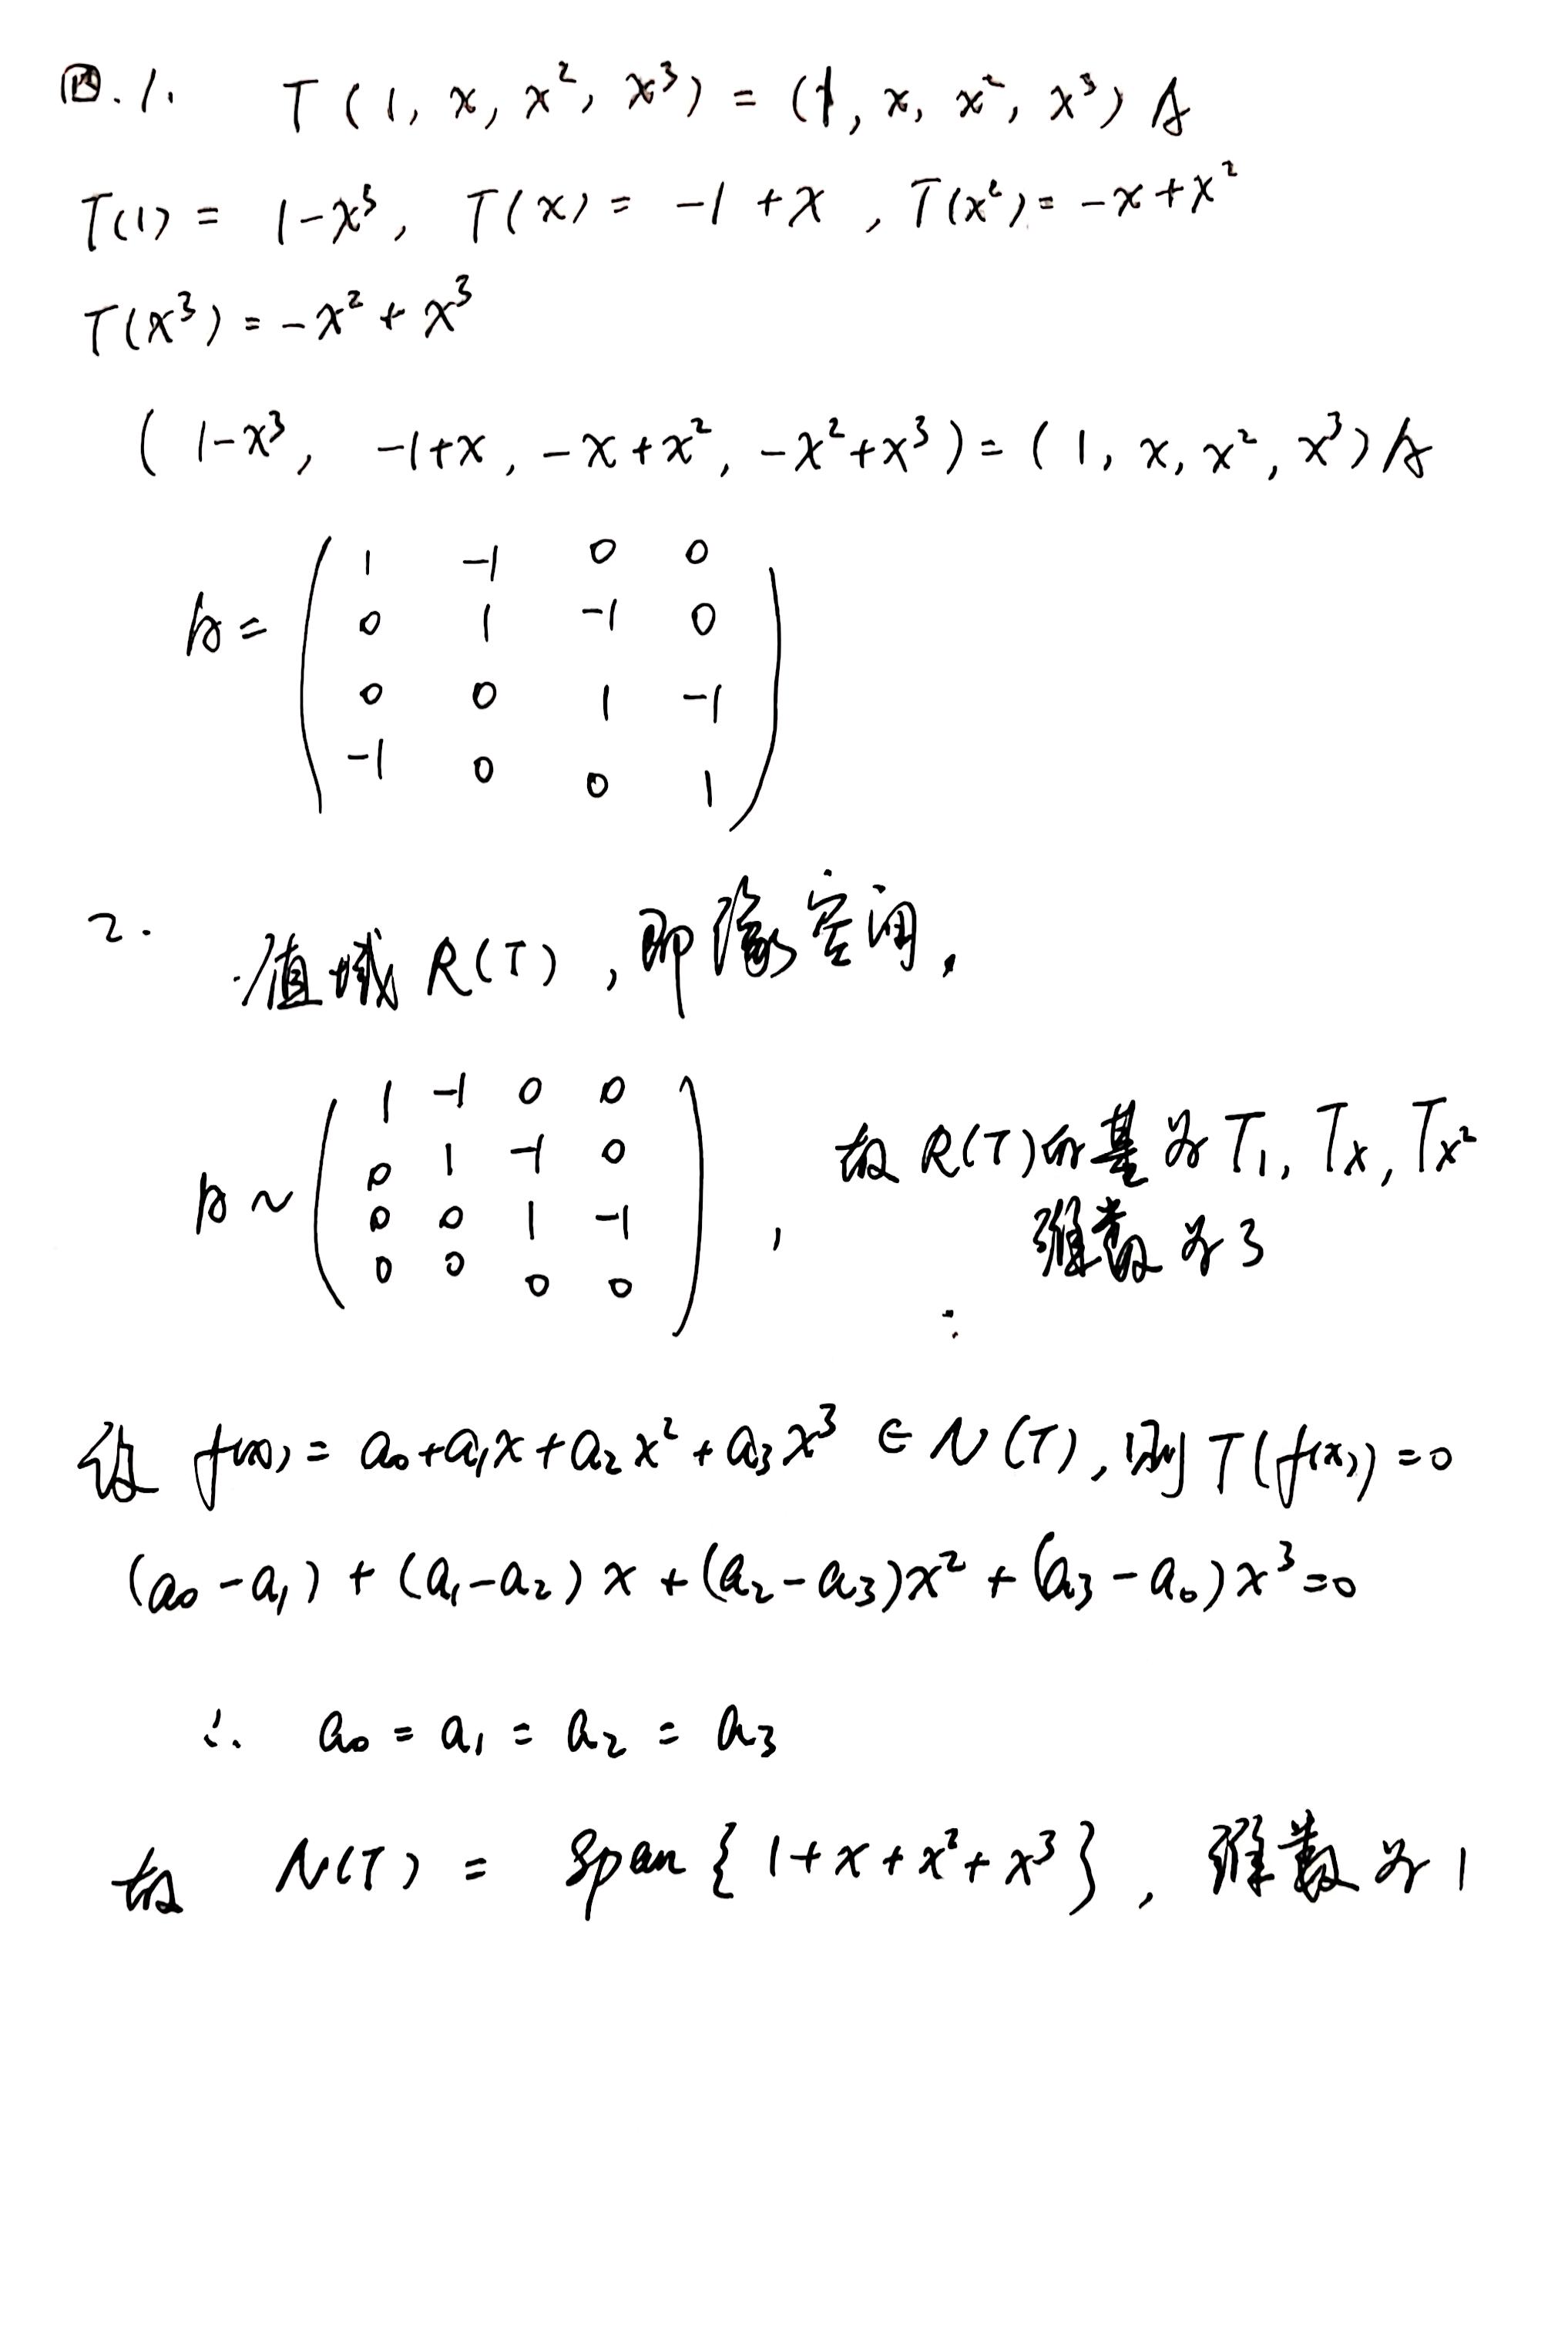 四.1. T(1, x, x², x³) = (1, x, x², x³) A
T(1) = 1-x³, T(x) = -1+x, T(x²) = -x+x²
T(x³) = -x²+x³
(1-x³, -1+x, -x+x², -x²+x³) = (1, x, x², x³) A
A =
1 -1 0 0
0 1 -1 0
0 0 1 -1
-1 0 0 1
2. 值域 R(T), 即像空间,
A ~
1 -1 0 0
0 1 -1 0
0 0 1 -1
0 0 0 0
, 故 R(T)的基为 T1, Tx, Tx²
维数为3
设 f(x) = a₀+a₁x+a₂x²+a₃x³ ∈ N(T), 则 T(f(x))=0
(a₀-a₁) + (a₁-a₂)x + (a₂-a₃)x² + (a₃-a₀)x³=0
∴ a₀ = a₁ = a₂ = a₃
故 N(T) = span{1+x+x²+x³}, 维数为1